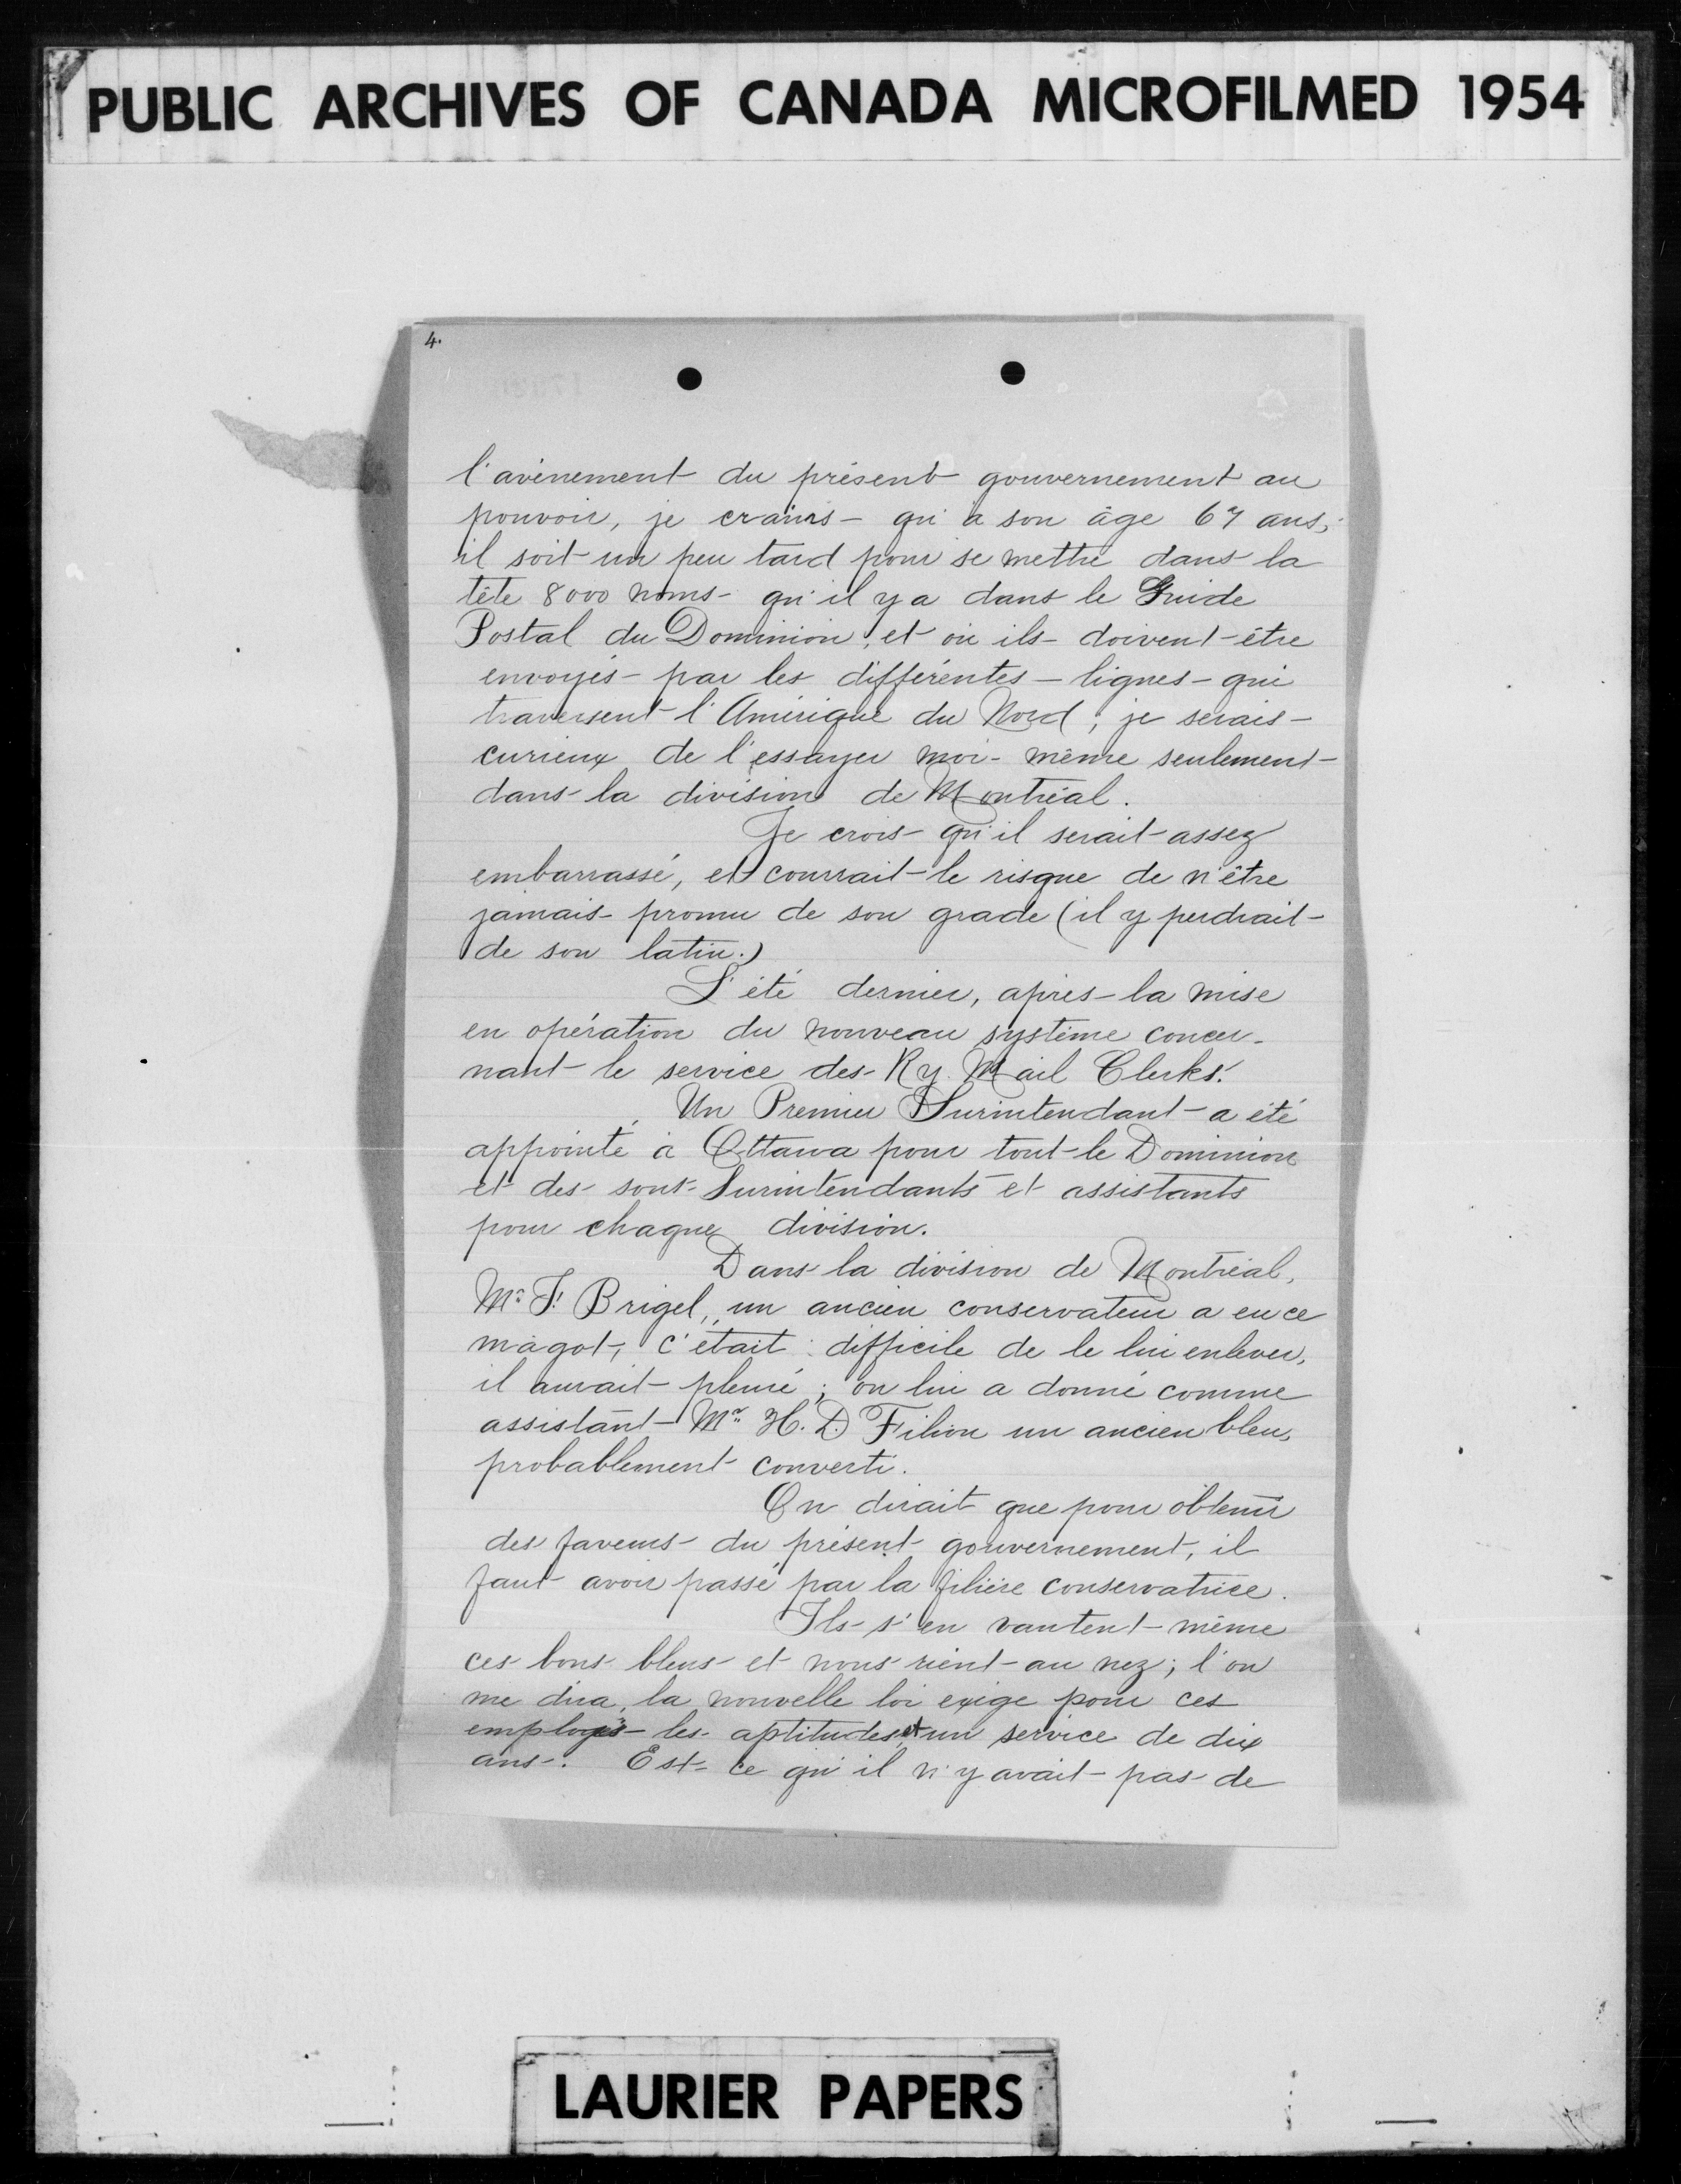 PUBLIC ARCHIVES OF CANADA MICROFILMED 1954
4.
l'avènement du présent gouvernement au
pouvoir, je crains qu'à son âge 67 ans,
il soit un peu tard pour se mettre dans la
tête 8000 noms qu'il y a dans le Guide
Postal du Dominion, et où ils doivent être
envoyés par les différentes lignes qui
traversent l'Amérique du Nord; je serais
curieux de l'essayer moi-même seulement
dans la division de Montréal.
Je crois qu'il serait assez
embarrassé, et courrait le risque de n'être
jamais promu de son grade (il y perdrait
de son latin.)
L'été dernier, après la mise
en opération du nouveau système concer-
nant le service des Ry. Mail Clerks.
Un Premier Surintendant a été
appointé à Ottawa pour tout le Dominion
et des sous-Surintendants et assistants
pour chaque division.
Dans la division de Montréal,
Mr F. Brigel, un ancien conservateur a eu ce
magot, c'était difficile de le lui enlever,
il aurait pleuré; on lui a donné comme
assistant Mr H. D. Filion un ancien bleu,
probablement converti.
On dirait que pour obtenir
des faveurs du présent gouvernement, il
faut avoir passé par la filière conservatrice.
Ils s'en vantent même
ces bons bleus et nous rient au nez; l'on
me dira, la nouvelle loi exige pour ces
employés les aptitudes et un service de dix
ans. Est-ce qu'il n'y avait pas de
LAURIER PAPERS